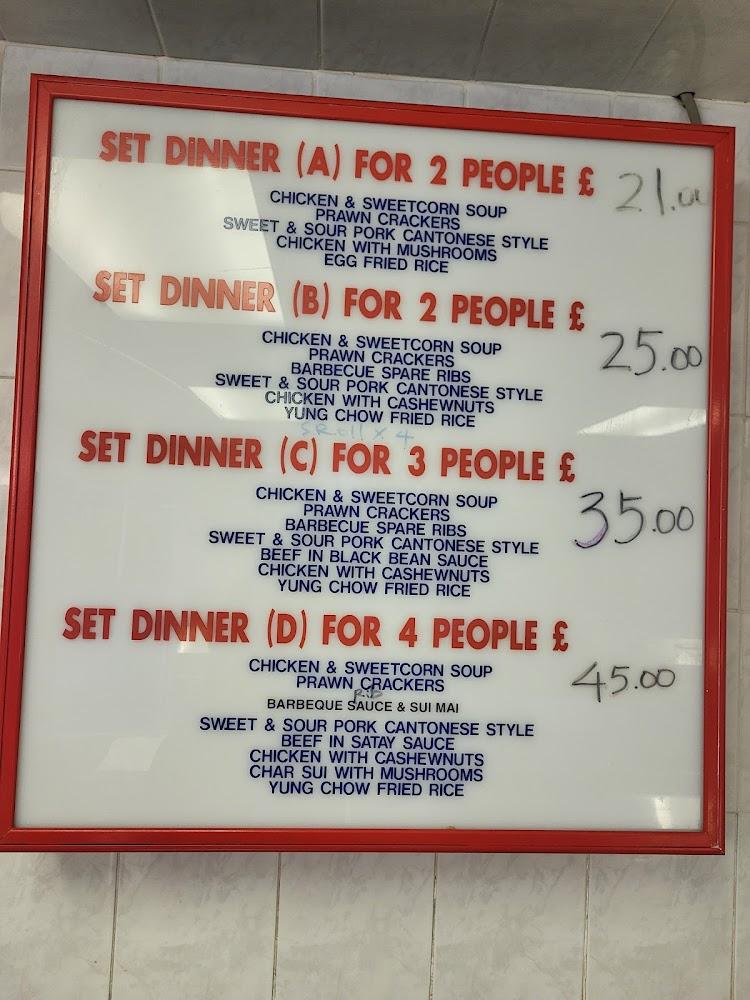 SET DINNER (A) FOR 2 PEOPLE £ 21.00
CHICKEN & SWEETCORN SOUP
PRAWN CRACKERS
SWEET & SOUR PORK CANTONESE STYLE
CHICKEN WITH MUSHROOMS
EGG FRIED RICE
SET DINNER (B) FOR 2 PEOPLE £ 25.00
CHICKEN & SWEETCORN SOUP
PRAWN CRACKERS
BARBECUE SPARE RIBS
SWEET & SOUR PORK CANTONESE STYLE
CHICKEN WITH CASHEWNUTS
YUNG CHOW FRIED RICE
S.Roll x 4
SET DINNER (C) FOR 3 PEOPLE £ 35.00
CHICKEN & SWEETCORN SOUP
PRAWN CRACKERS
BARBECUE SPARE RIBS
SWEET & SOUR PORK CANTONESE STYLE
BEEF IN BLACK BEAN SAUCE
CHICKEN WITH CASHEWNUTS
YUNG CHOW FRIED RICE
SET DINNER (D) FOR 4 PEOPLE £ 45.00
CHICKEN & SWEETCORN SOUP
PRAWN CRACKERS
RIB
BARBEQUE SAUCE & SUI MAI
SWEET & SOUR PORK CANTONESE STYLE
BEEF IN SATAY SAUCE
CHICKEN WITH CASHEWNUTS
CHAR SUI WITH MUSHROOMS
YUNG CHOW FRIED RICE